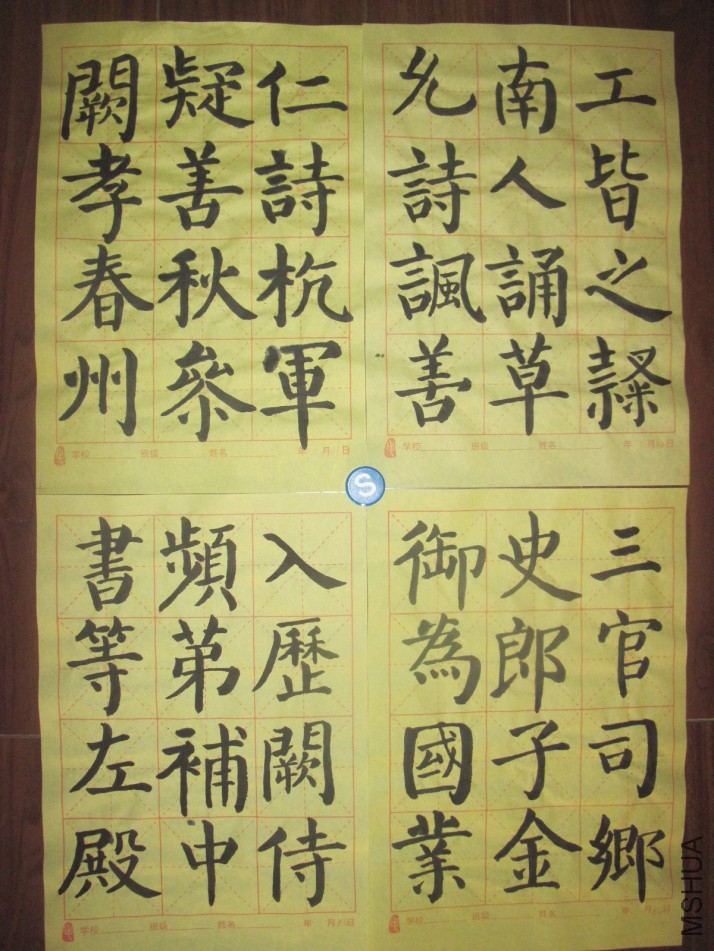 闕疑仁
孝善詩
春秋杭
州參軍
学校 班级 姓名 年 月 日
允南工
詩人皆
諷誦之
善草隸
学校 班级 姓名 年 月 日
書頻入
等苐歷
左補闕
殿中侍
学校 班级 姓名 年 月 日
御史三
為郎官
國子司
業金鄉
学校 班级 姓名 年 月 日
S
MSHUA